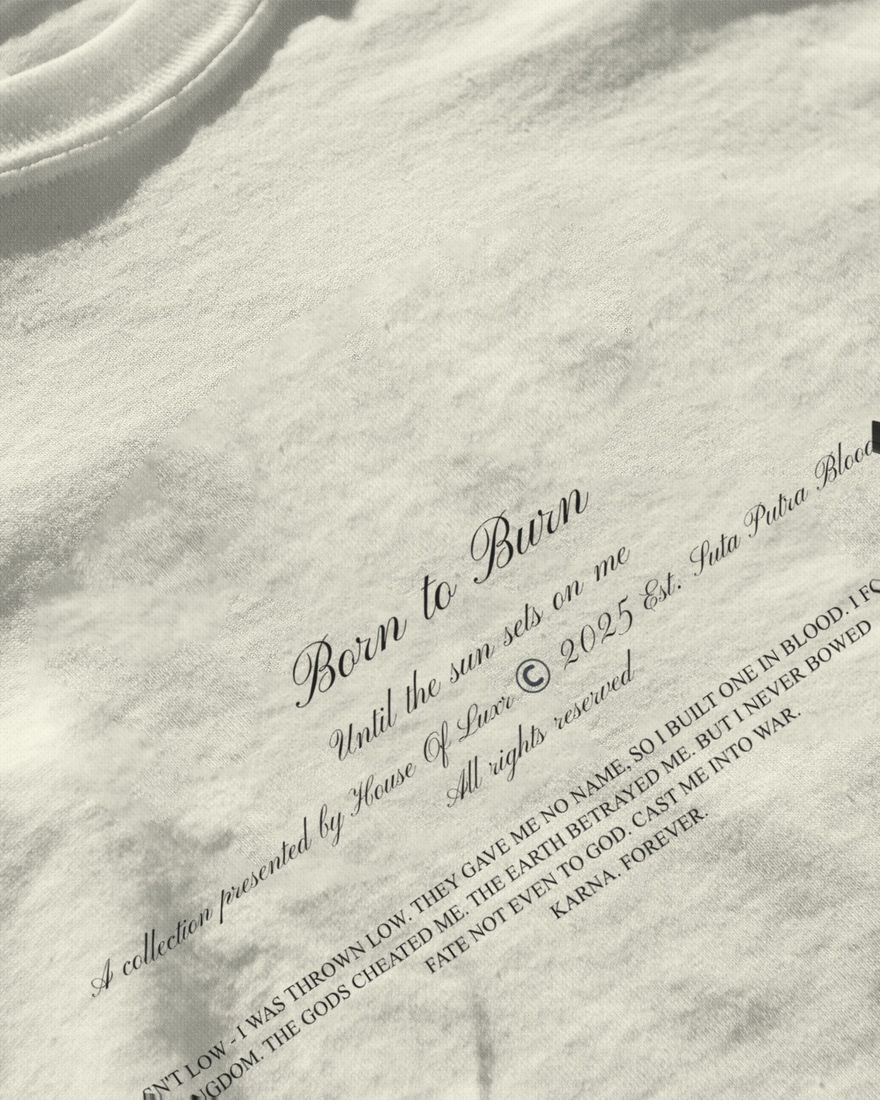 Born to Burn
Until the sun sets on me
A collection presented by House Of Luxr © 2025 Est. Suta Putra Blood
All rights reserved
LOW - I WAS THROWN LOW. THEY GAVE ME NO NAME. SO I BUILT ONE IN BLOOD. I
THE GODS CHEATED ME. THE EARTH BETRAYED ME. BUT I NEVER BOWED
FATE NOT EVEN TO GOD. CAST ME INTO WAR.
KARNA. FOREVER.